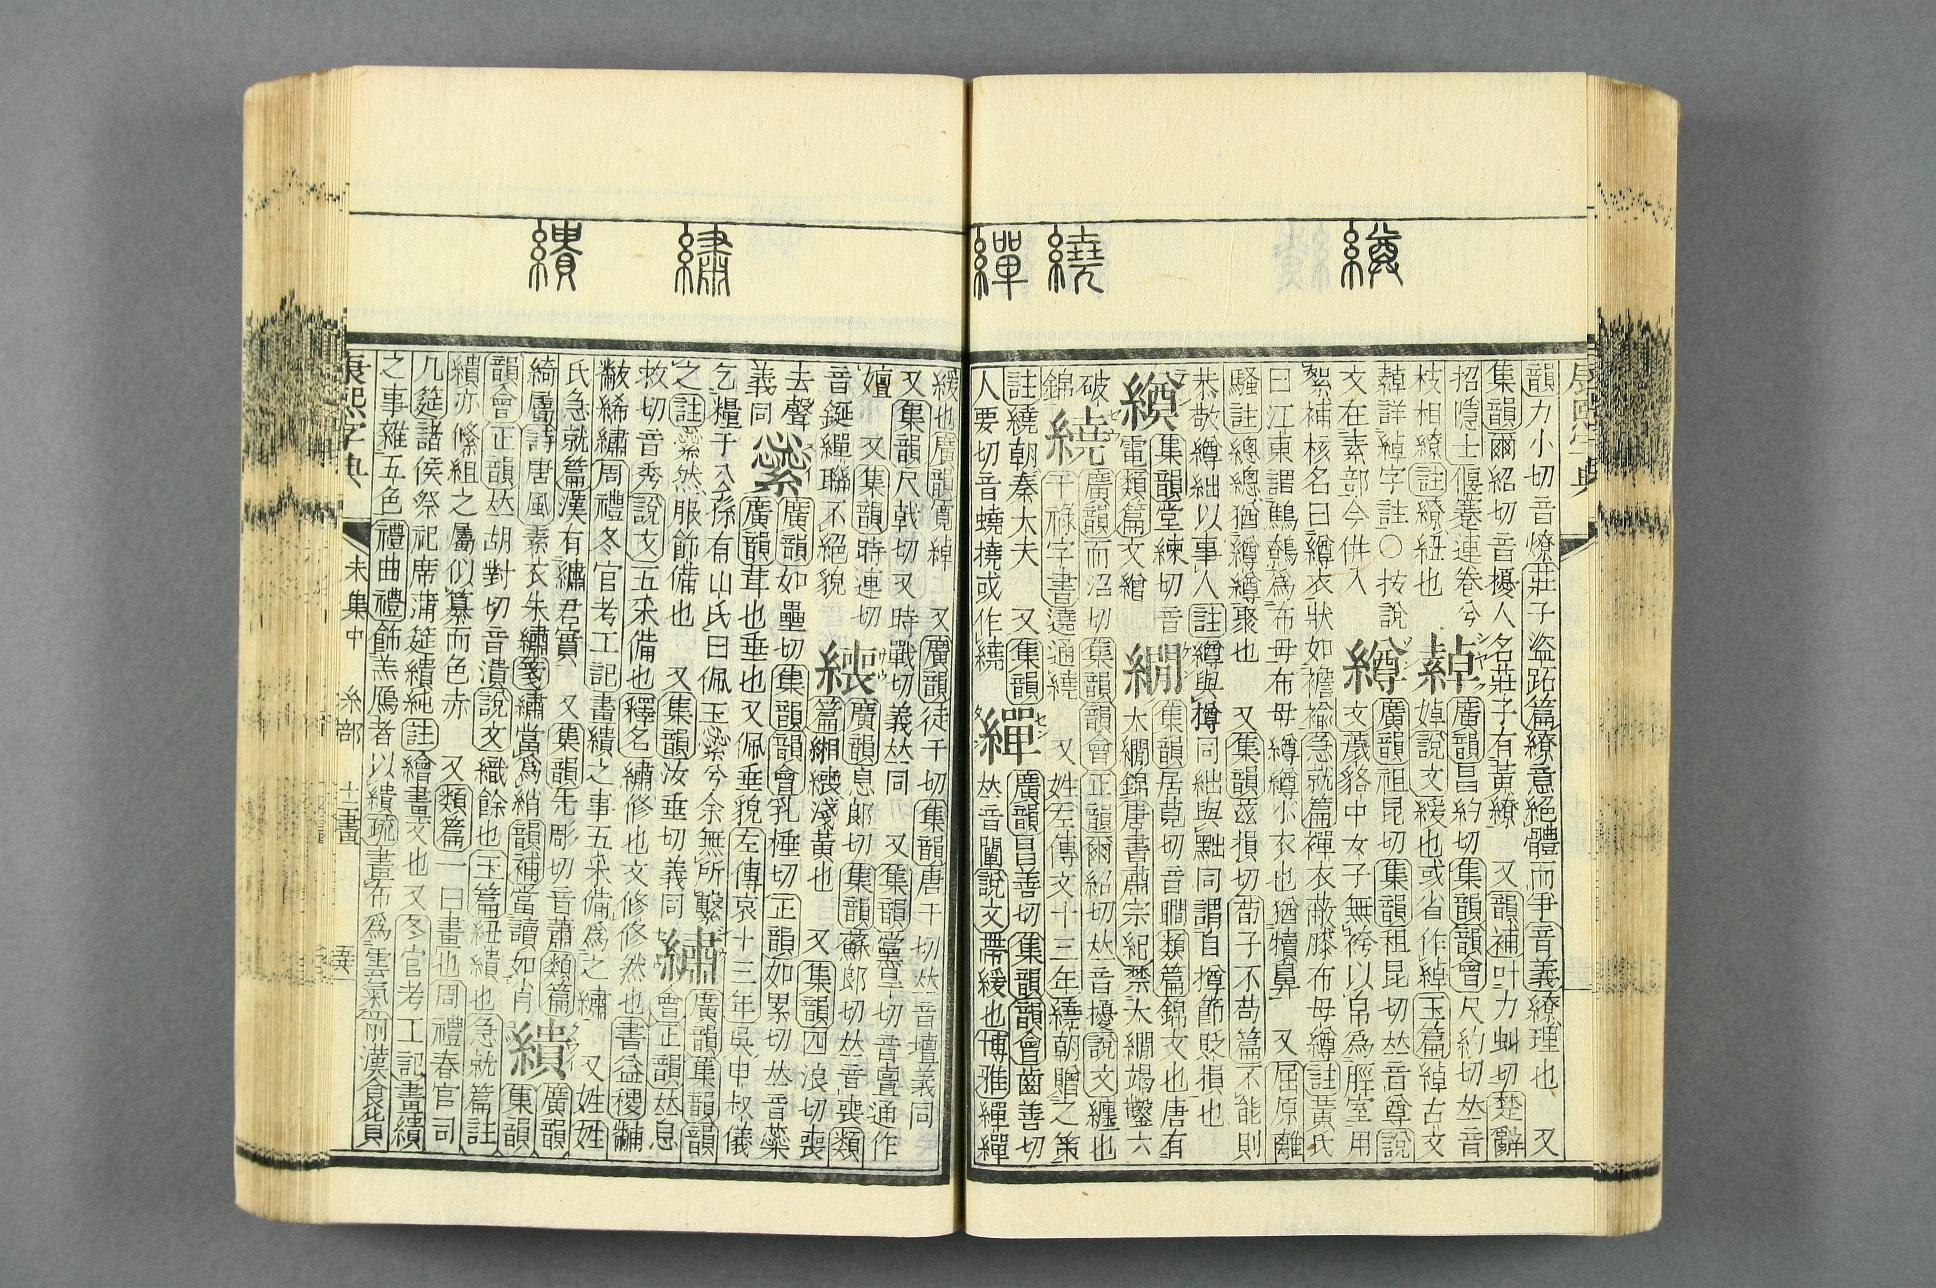 繜
繞
繟
韻力小切音燎莊子盜跖篇繚意絕體而爭音義繚理也 又
集韻爾紹切音擾人名莊子有黃繚 又韻補叶力虯切楚辭
招隱士偃蹇連卷兮
枝相繚註繚紐也
繛
廣韻昌約切集韻韻會尺約切𠀤音
婥說文緩也或省作綽玉篇綽古文
繛詳綽字註〇按說
文在素部今供入
繜
廣韻祖昆切集韻租昆切𠀤音尊說
文薉貉中女子無袴以帛爲脛空用
絮補核名曰繜衣狀如襜褕急就篇襌衣蔽膝布母繜註黃氏
曰江東謂鷦鷯爲布母布母繜繜小衣也猶犢鼻 又屈原離
騷註總總猶繜繜聚也 又集韻茲損切荀子不苟篇不能則
恭敬繜絀以事人註繜與撙同絀與黜同謂自撙節貶損也
集韻堂練切音
電類篇文繒
繝
集韻居莧切音瞷類篇錦文也唐有
大繝錦唐書肅宗紀禁大繝竭鑿六
破
錦
繞
廣韻而沼切集韻韻會正韻爾紹切𠀤音擾說文纏也
干祿字書遶通繞 又姓左傳文十三年繞朝贈之策
註繞朝秦大夫 又集韻
人要切音蟯撓或作繞
繟
廣韻昌善切集韻韻會齒善切
𠀤音闡說文帶緩也博雅繟繟
繡
繢
緩也廣韻寬綽 又廣韻徒干切集韻唐干切𠀤音壇義同
又集韻尺戰切又時戰切義𠀤同 又集韻黨旱切音亶通作
嬗 又集韻時連切
音鋋繟聯不絕貌
廣韻息郞切集韻蘇郞切𠀤音喪類
篇緗色淺黃也 又集韻四浪切喪
去聲
義同
繠
廣韻如壘切集韻韻會乳捶切正韻如累切𠀤音蘂
廣韻茸也垂也又佩垂貌左傳哀十三年吳申叔儀
乞糧于公孫有山氏曰佩玉繠兮余無所繫
之註繠然服飾備也 又集韻汝垂切義同
繡
廣韻集韻韻
會正韻𠀤息
救切音秀說文五采備也釋名繡修也文修修然也書益稷黼
黻絺繡周禮冬官考工記畫繢之事五采備爲之繡 又姓姓
氏急就篇漢有繡君賓 又集韻先彫切音蕭類篇
綺屬詩唐風素衣朱繡箋繡當爲綃韻補當讀如肖
繢
廣韻
集韻
韻會正韻𠀤胡對切音潰說文織餘也玉篇紐繢也急就篇註
繢亦絛組之屬似纂而色赤 又類篇一曰畫也周禮春官司
几筵諸侯祭祀席蒲筵繢純註繪畫文也又冬官考工記畫繢
之事雜五色禮曲禮飾羔鴈者以繢疏畫布爲雲氣前漢食貨
康熙字典
未集中 糸部 十二畫